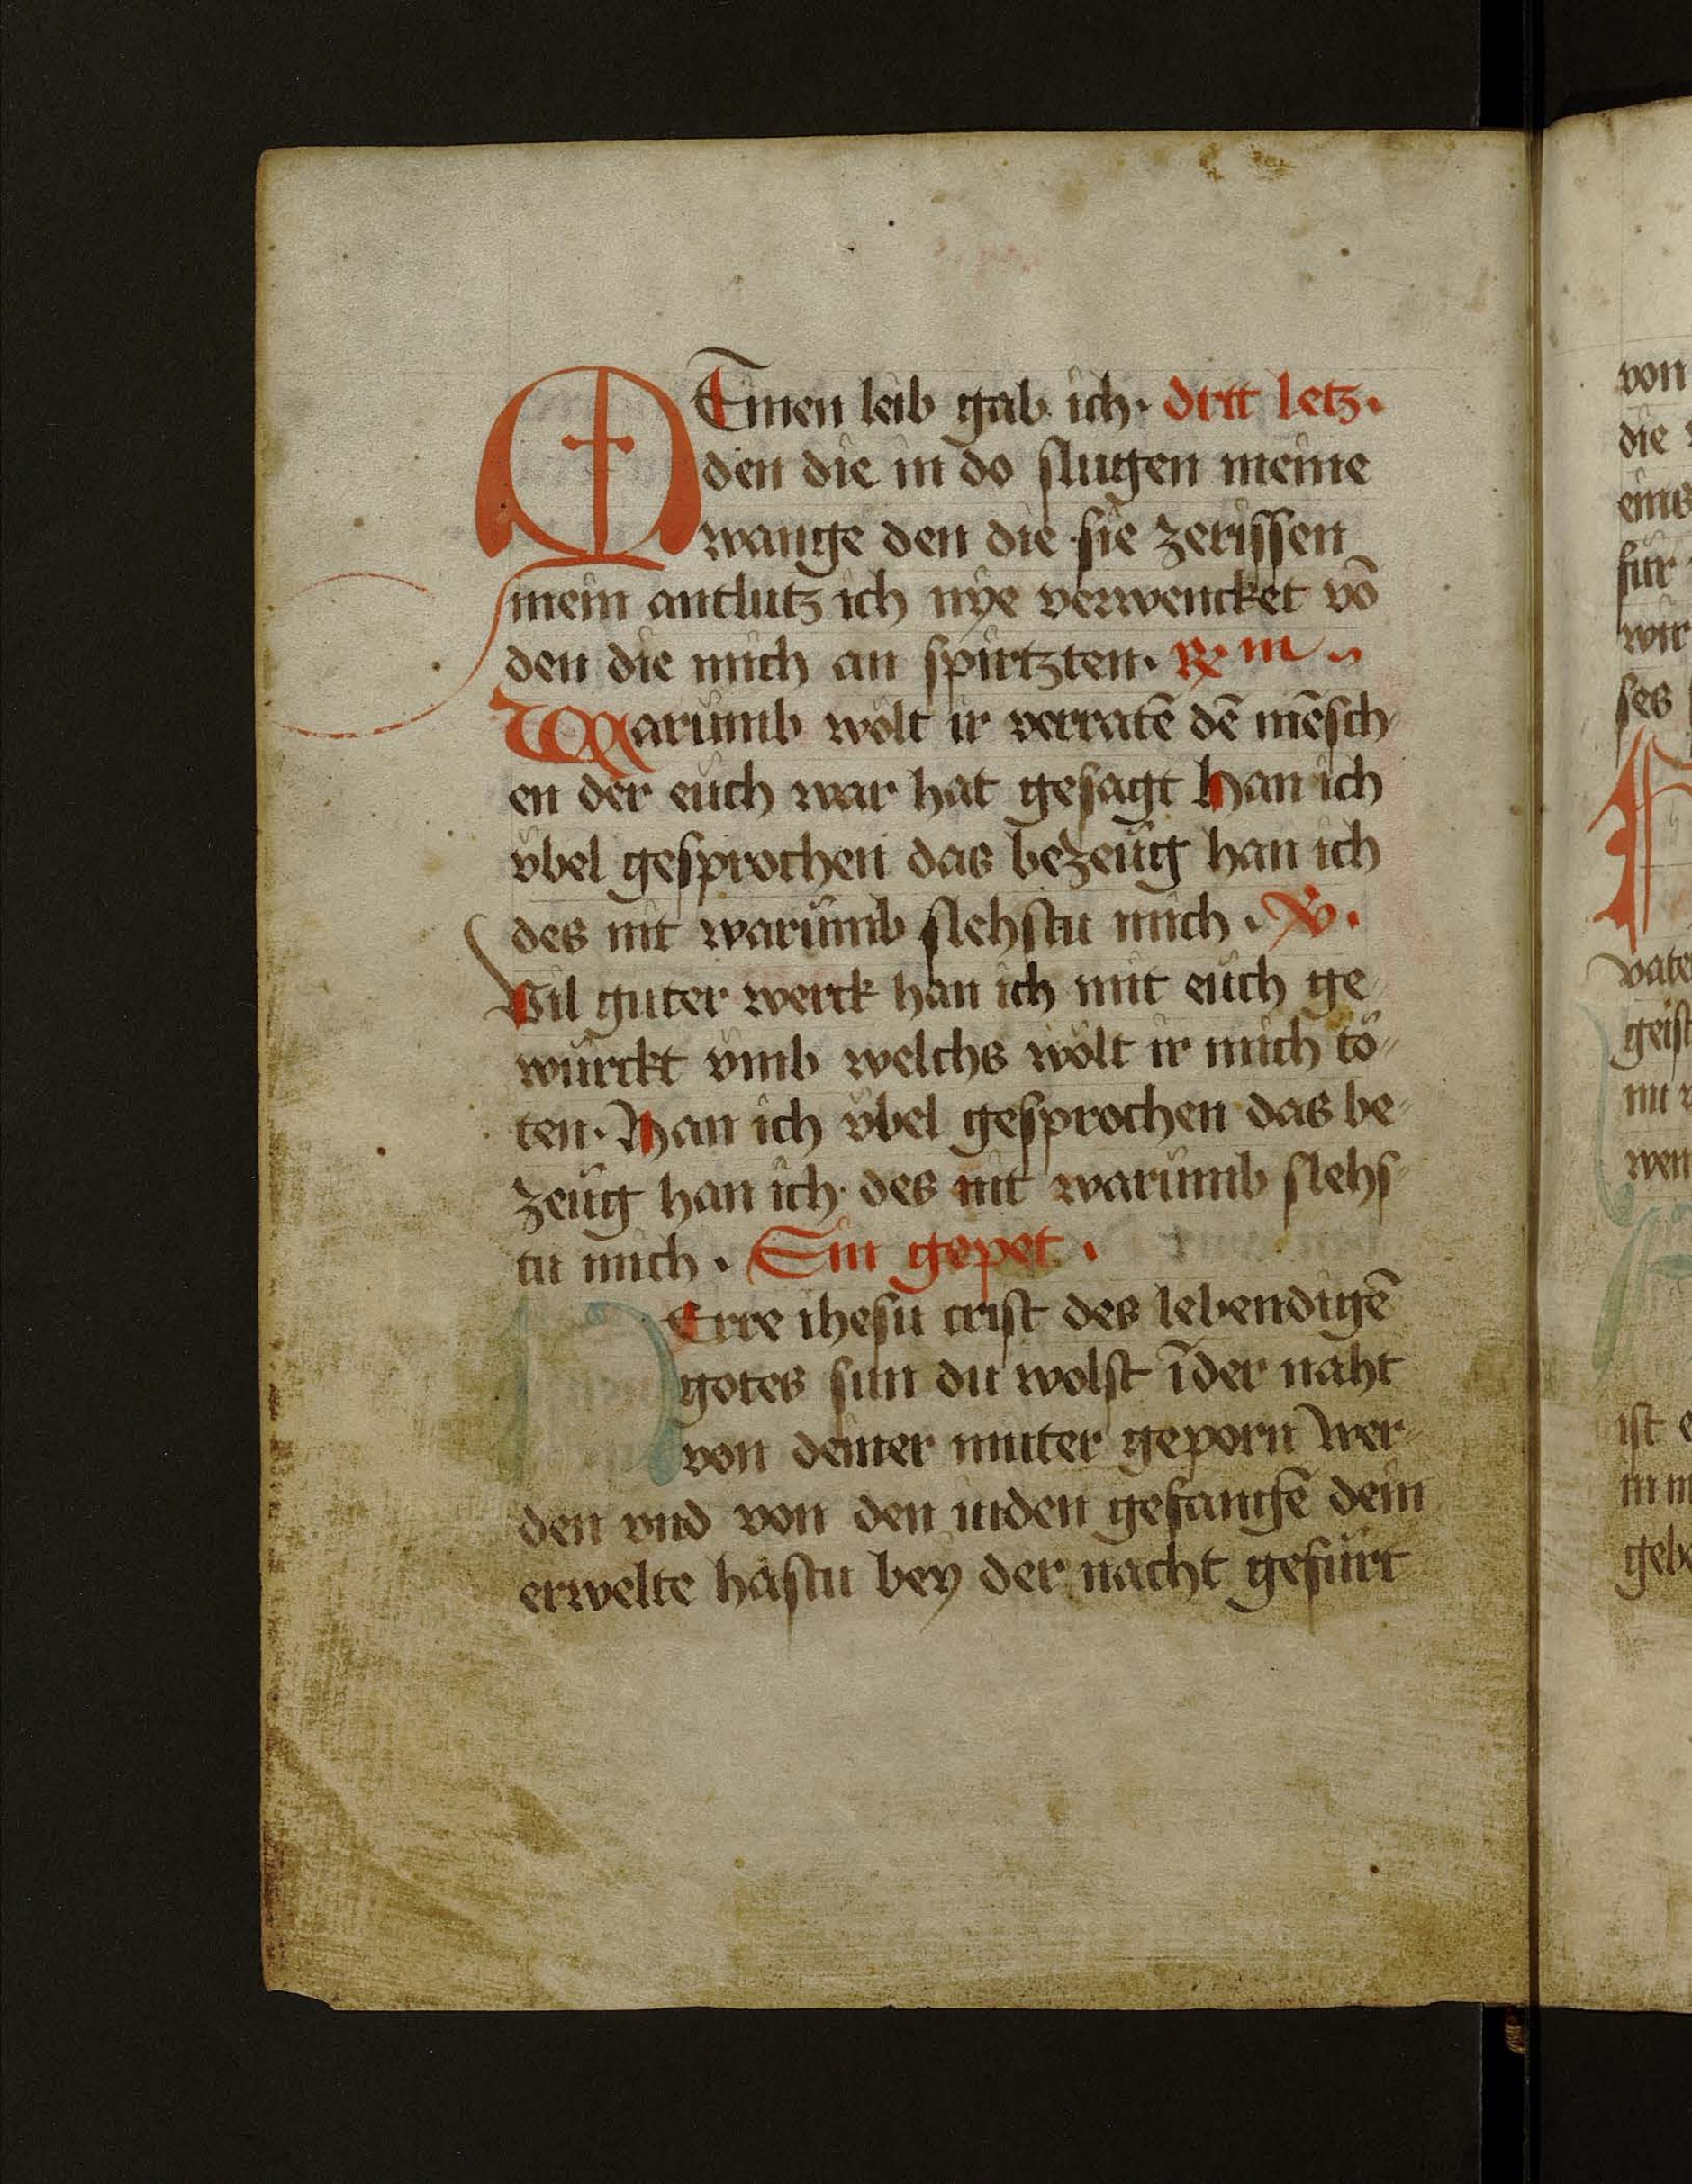 MEinen leib gab ich · dritt letz ·
den die in do slugen meine
wange den die sie zerissen
mein antlutz ich nÿe verwencket vō
den die mich an spirtzten · ℞ iii
Warumb wolt ir verratē dē mēsch
en der euch war hat gesagt Han ich
vbel gesprochen das bezeug han ich
des nit warumb slehstu mich · V ·
Vil guter werck han ich mit euch ge
wurckt vmb welchs wölt ir mich tö
ten · Han ich vbel gesprochen das be
zeug han ich des nit warumb slehs
tu mich · Ein gepet ·
HErre ihesu crist des lebendigē
gotes sun du wolst ī der naht
von deiner muter geporn wer
den vnd von den iuden gefangē dein
erwelte hastu bey der nacht gefürt
von
die
eins
für
wir
ses
vate
geist
mi
wen
ist e
in m
gebe